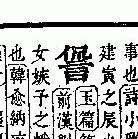 事也詩小
建寅之辰
玉篇
前漢
女嫉子之
也韓愈納